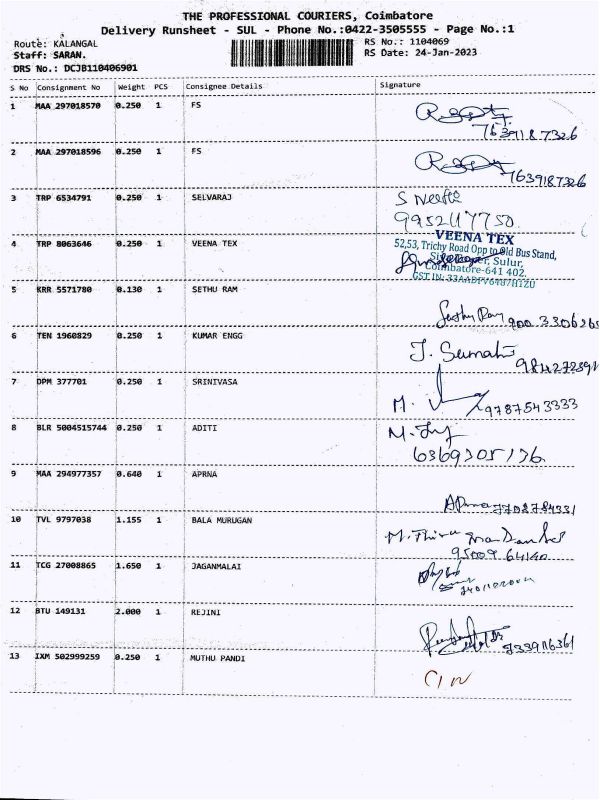 THE PROFESSIONAL COURIERS, Coimbatore
Delivery Runsheet - SUL - Phone No.:0422-3505555 - Page No.:1
Route: KALANGAL RS No.: 1104069
Staff: SARAN. RS Date: 24-Jan-2023
DRS No.: DCJB110406901
S No Consignment No Weight PCS Consignee Details Signature
1 MAA 297018570 0.250 1 FS
7639187326
2 MAA 297018596 0.250 1 FS
7639187326
3 TRP 6534791 0.250 1 SELVARAJ S
9952117750
4 TRP 8063646 0.250 1 VEENA TEX VEENA TEX
52,53, Trichy Road Opp to Old Bus Stand,
Sulur,
Coimbatore-641 402.
5 KRR 5571780 0.130 1 SETHU RAM
6 TEN 1960829 0.250 1 KUMAR ENGG J.
7 DPM 377701 0.250 1 SRINIVASA M.
9787543333
8 BLR 5004515744 0.250 1 ADITI M.
9 MAA 294977357 0.640 1 APRNA
10 TVL 9797038 1.155 1 BALA MURUGAN M.
11 TCG 27008865 1.650 1 JAGANMALAI
12 BTU 149131 2.000 1 REJINI
13 IXM 502999259 0.250 1 MUTHU PANDI